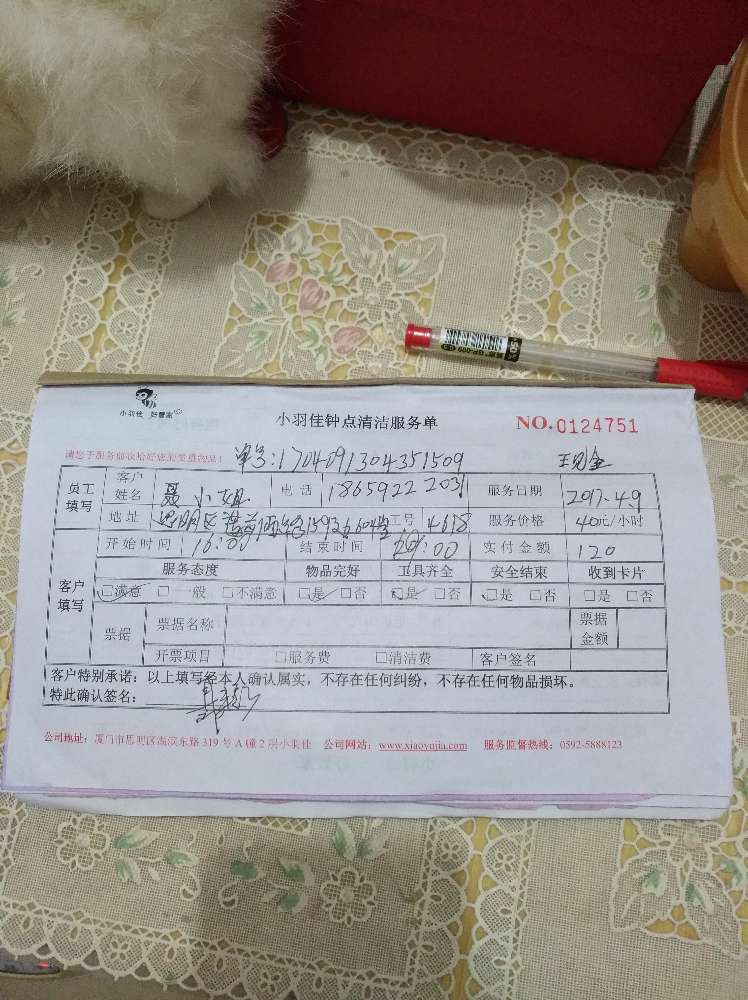 小羽佳 好管家
小羽佳钟点清洁服务单
NO.0124751
请您于服务前收拾好您的贵重物品!
单号:1704091304351509
现金
员工填写
客户姓名 聂小姐 电话 18659222031 服务日期 2017.4.9
地址 思明区 604 工号 4618 服务价格 40元/小时
客户填写
开始时间 16:00 结束时间 :00 实付金额 120
服务态度 物品完好 工具齐全 安全结束 收到卡片
□满意 □一般 □不满意 □是 □否 □是 □否 □是 □否 □是 □否
票据 票据名称 票据金额
开票项目 □服务费 □清洁费 客户签名
客户特别承诺:以上填写经本人确认属实,不存在任何纠纷,不存在任何物品损坏。
特此确认签名:
公司地址:厦门市思明区湖滨东路 319 号 A 幢 2 层小羽佳 公司网站:www.xiaoyujia.com 服务监督热线:0592-5888123